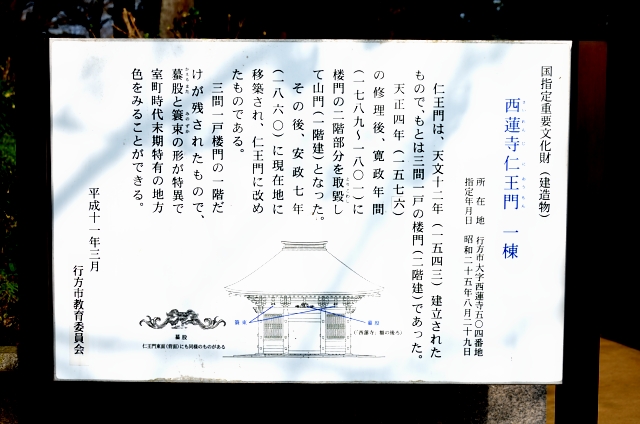 国指定重要文化財（建造物）
西蓮寺仁王門　一棟
所在地　行方市大字西蓮寺五〇四番地
指定年月日　昭和二十五年八月二十九日
仁王門は、天文十二年（一五四三）建立された
もので、もとは三間一戸の楼門（二階建）であった。
天正四年（一五七六）
の修理後、寛政年間
（一七八九～一八〇一）に
楼門の二階部分を取毀し
て山門（一階建）となった。
その後、安政七年
（一八六〇）に現在地に
移築され、仁王門に改め
たものである。
三間一戸楼門の一階だ
けが残されたもので、
蟇股と簑束の形が特異で
室町時代末期特有の地方
色をみることができる。
平成十一年三月
行方市教育委員会
簑束
蟇股
蟇股
仁王門東面(背面)にも同様のものがある